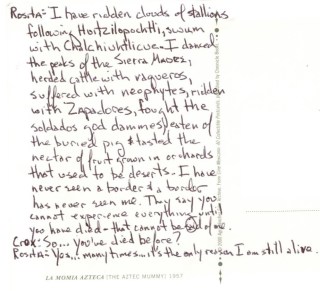 Rosita: I have ridden clouds of stallions
following Hoitzilopochtli, swum
with Chalchiuhtlicue. I danced
the peaks of the Sierra Madres,
herded cattle with vaqueros,
suffered with neophytes, ridden
with Zapadores, fought the
soldados god dammes, eaten of
the buried pig & tasted the
nectar of fruit grown in orchards
that used to be deserts. I have
never seen a border & a border
has never seen me. They say you
cannot experience everything until
you have died - that cannot be said of me.
Crox: So... you've died before?
Rosita: Yes... many times... it's the only reason I am still alive.
LA MOMIA AZTECA (THE AZTEC MUMMY) 1957